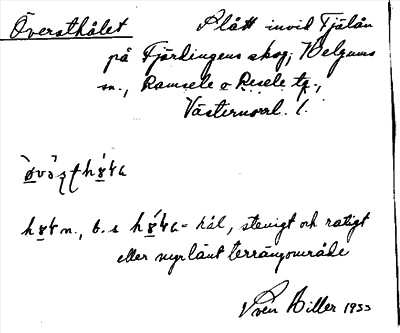 Översthålet Plått invid Fjälån
på Fjärdingens skog; Helgums
sn., Ramsele o Resele tg.,
Västernorrl. l.
hɣ̣̈ɫ n., b. s = hål, stenigt och ratigt
eller myrlänt terrängområde
Sven Hiller 1933